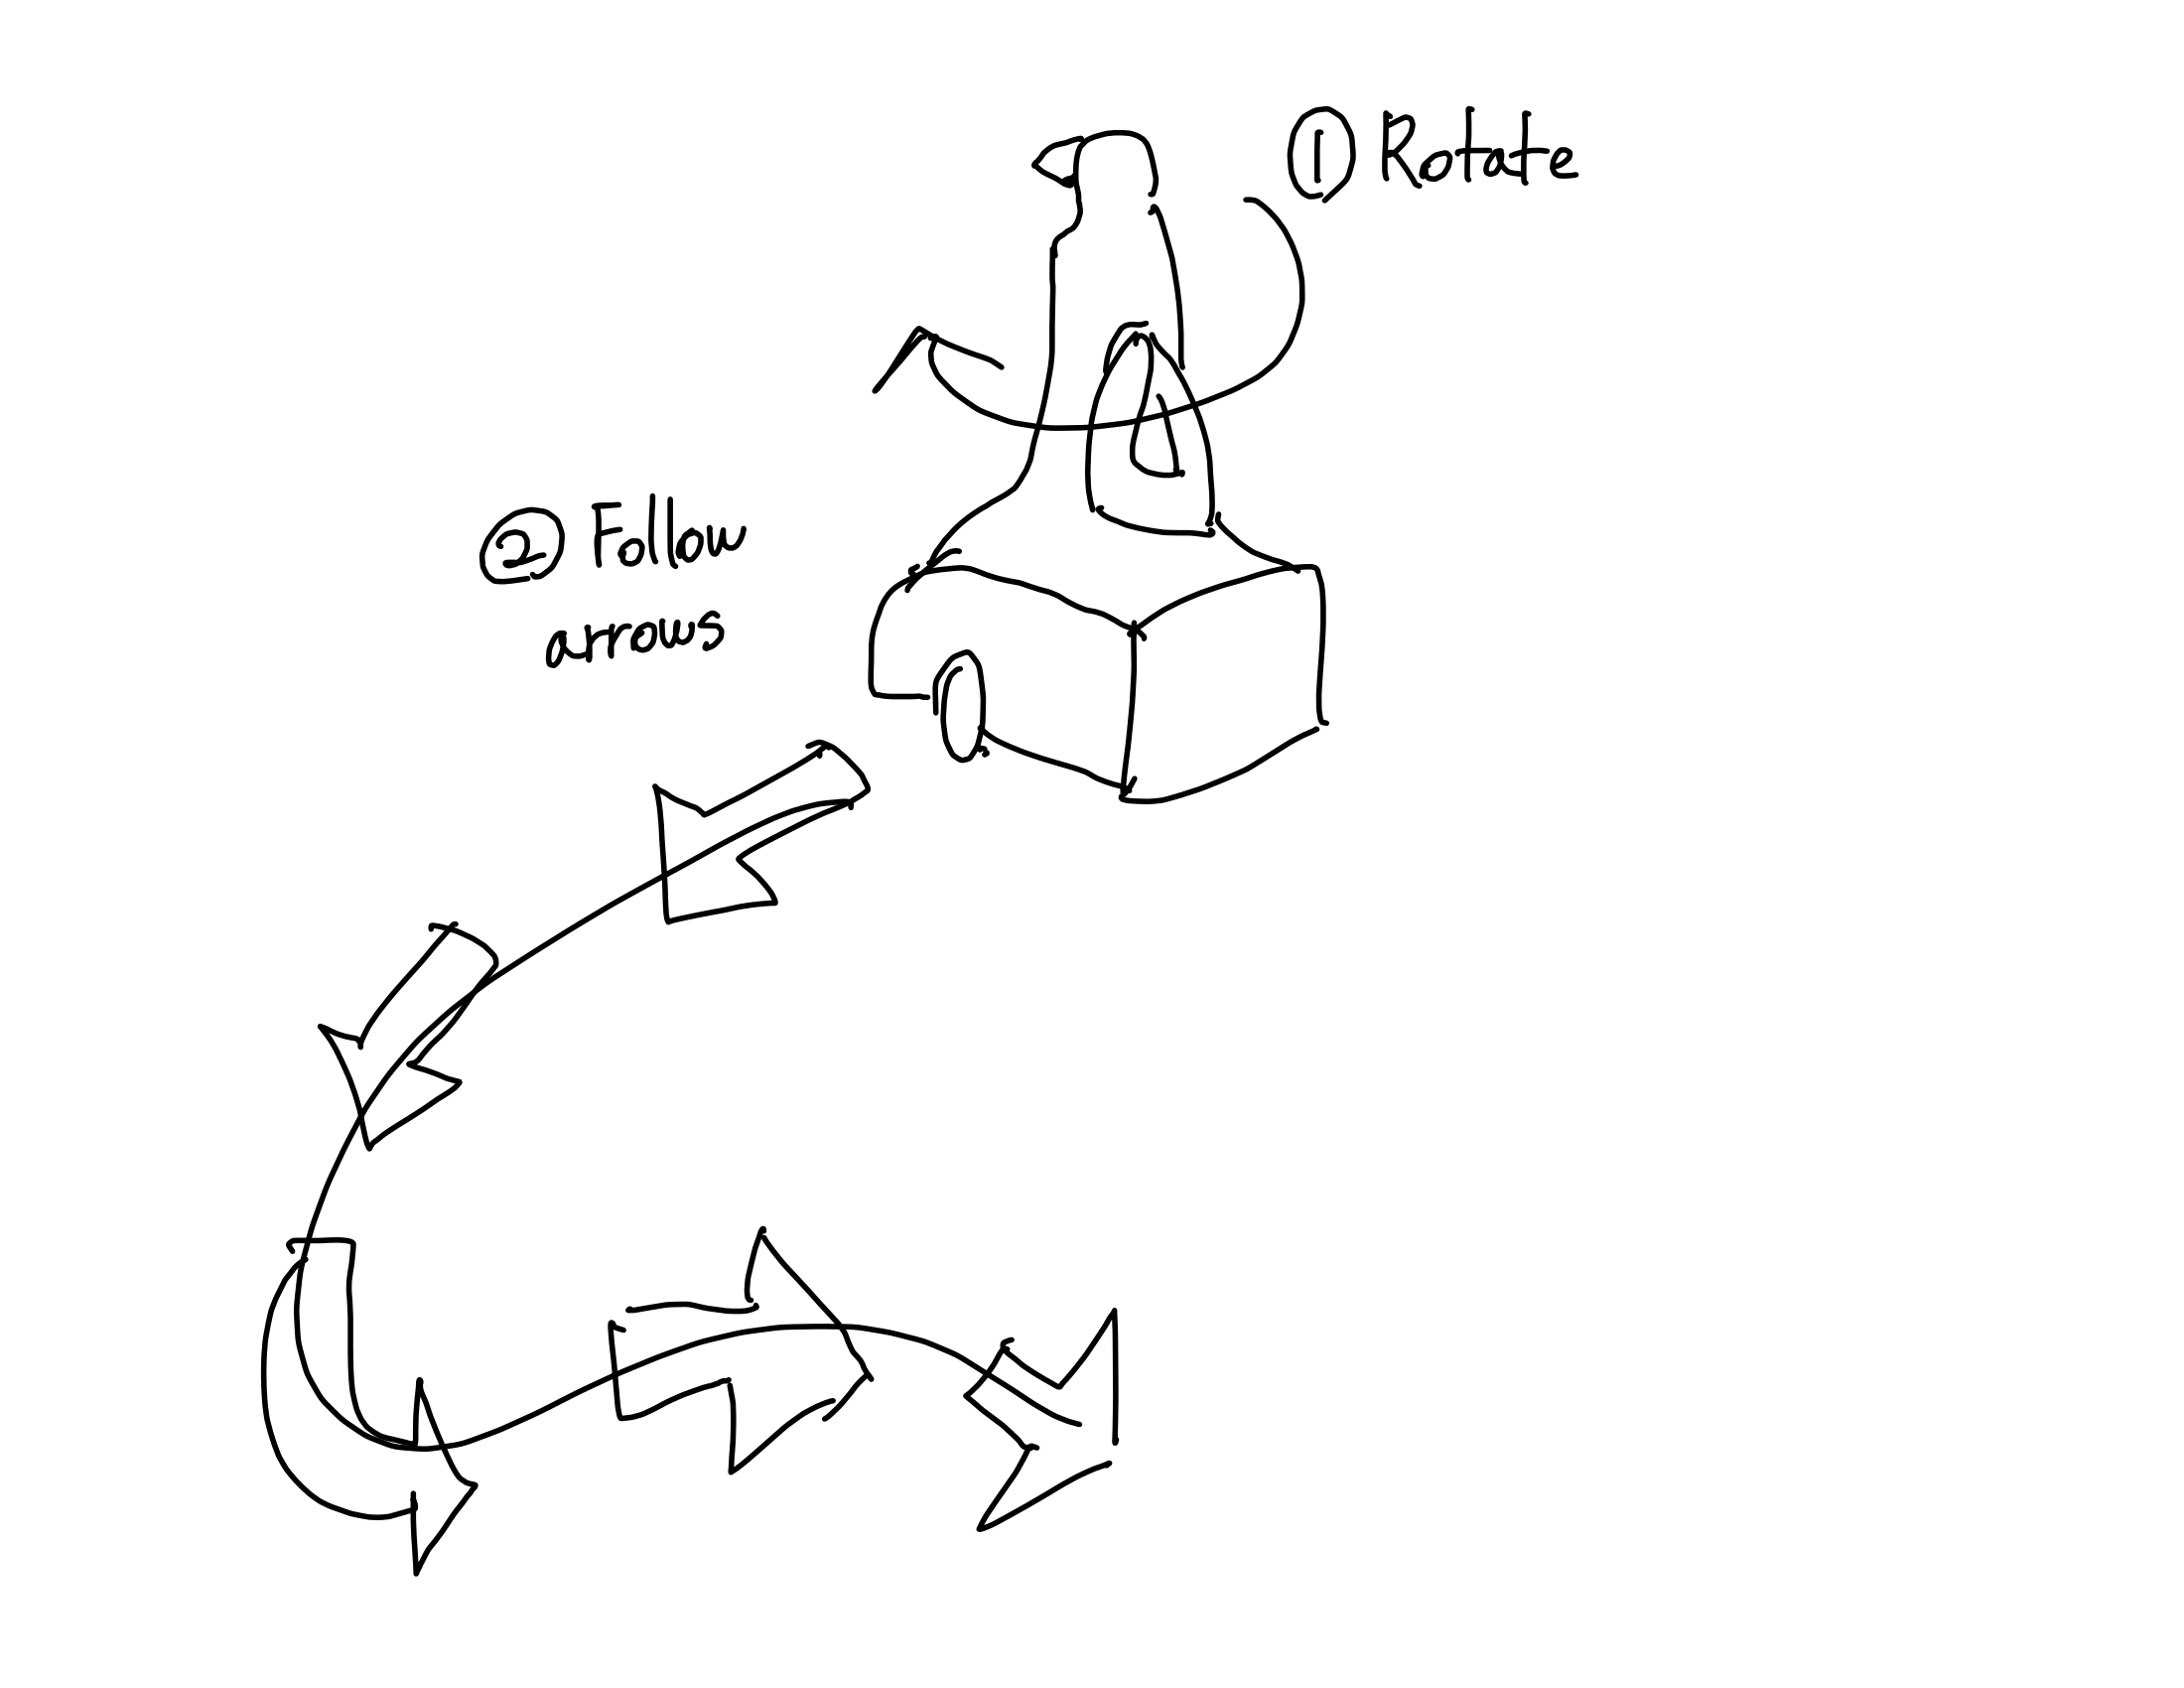 ① Rotate
② Follow
arrows